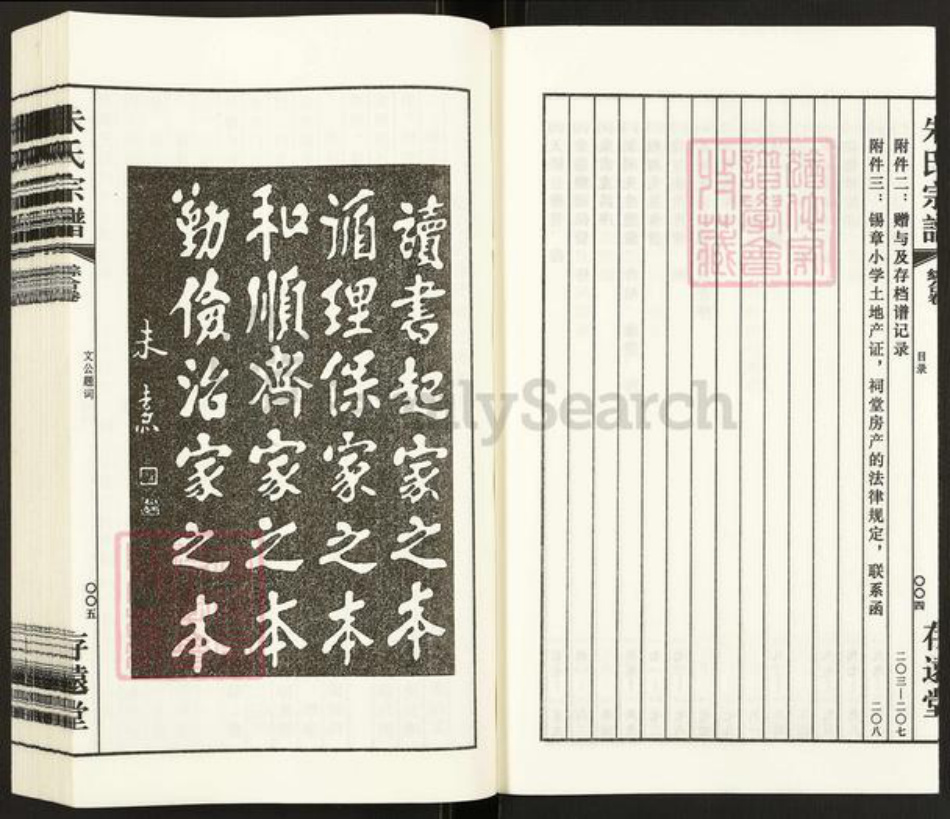 朱氏宗譜
目录
〇〇四
存遠堂
附件二：赠与及存档谱记录 二〇三—二〇七
附件三：锡章小学土地产证，祠堂房产的法律规定，联系函 二〇八
讀書起家之本
循理保家之本
和順齊家之本
勤儉治家之本
朱熹
朱氏宗譜
綜合卷
文公题词
〇〇五
存遠堂
FamilySearch